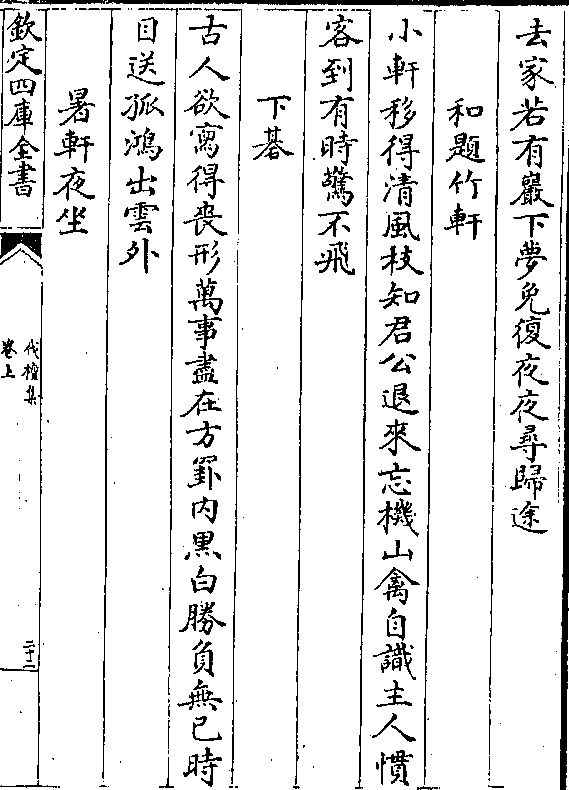 去家若有巖下夢免復夜夜尋歸途
和題竹軒
小軒移得清風枝知君公退來忘機山禽自識主人慣
客到有時驚不飛
下碁
古人欲寓得喪形萬事盡在方罫内黒白勝負無已時
目送孤鴻出雲外
暑軒夜坐
欽定四庫全書
伐檀集
卷上
二十二